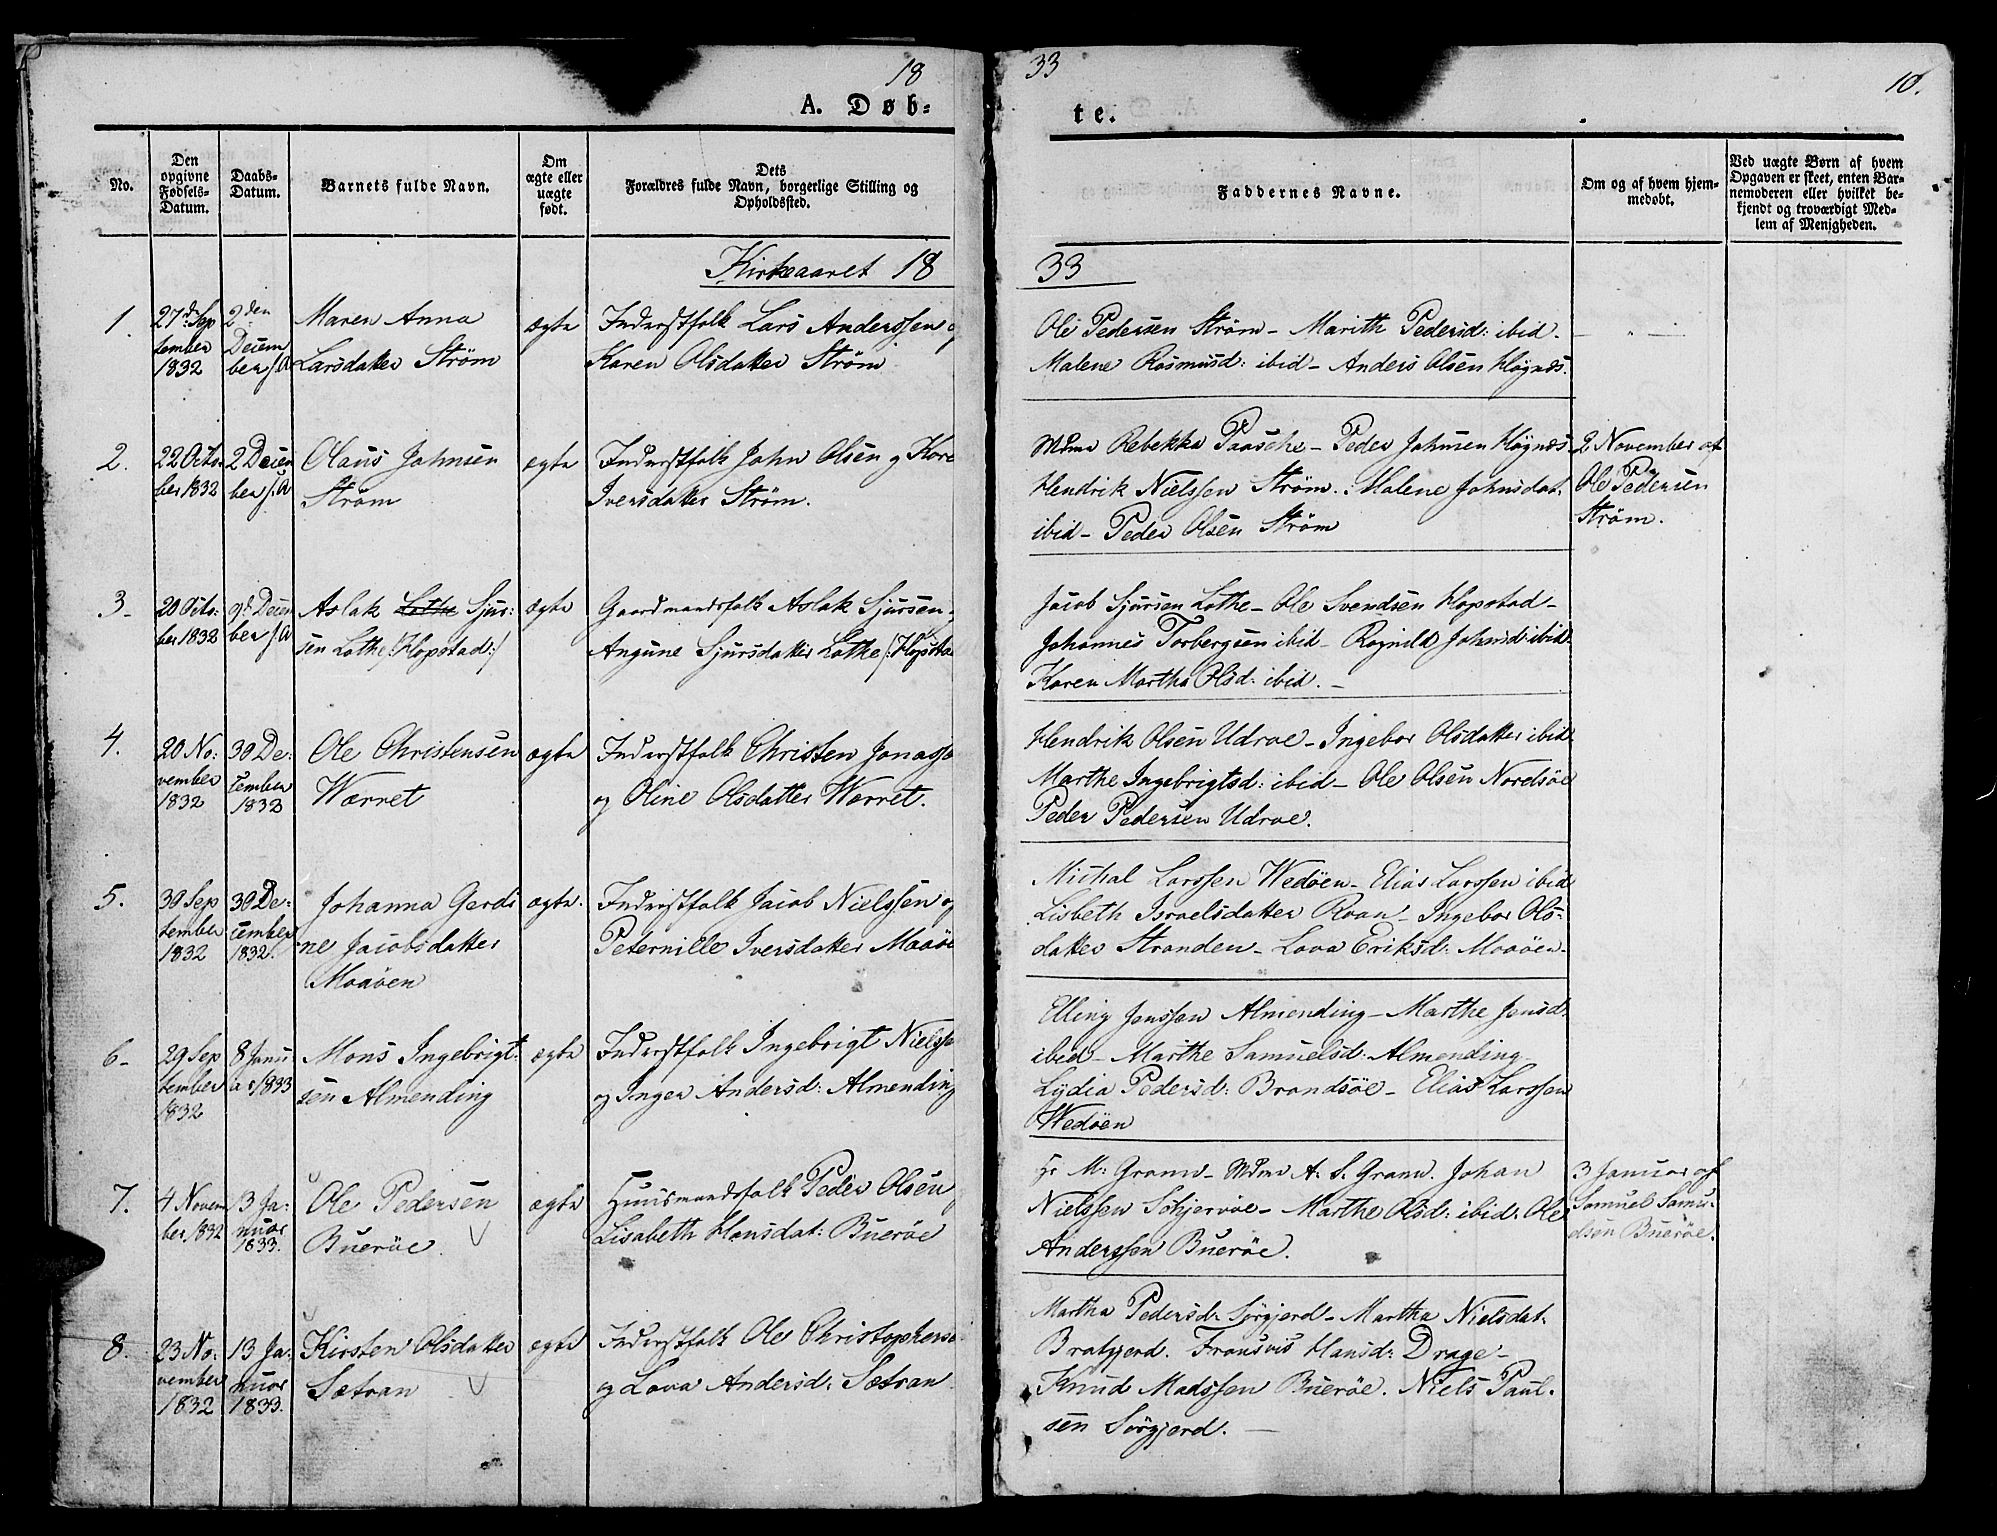 18
33
10.
A. Døb-
te.
No.
Den opgivne Fødsels-Datum.
Daabs-Datum.
Barnets fulde Navn.
Om ægte eller uægte født.
Dets Forældres fulde Navn, borgerlige Stilling og Opholdssted.
Faddernes Navne.
Om og af hvem hjem-medøbt.
Ved uægte Børn af hvem Opgaven er skeet, enten Bar-nemoderen eller hvilket be-kjendt og troværdigt Med-lem af Menigheden.
Kirkeaaret 18
33
1.
27d. Sep
tember
1832
2den
Decem
ber f. A
Maren Anna
Larsdatter Strøm
ægte
Inderstfolk Lars Anderssen og
Karen Olsdatter Strøm
Ole Pedersen Strøm - Marith Pedersd: ibid.
Malene Rasmusd: ibid - Anders Olsen Høgnæs.
2.
22 Octo
ber 1832
2 Decem
ber f. A
Olaus Johnsen
Strøm
ægte
Inderstfolk John Olsen og Kare
Iversdatter Strøm.
Mdme Rebekka Paasche - Peder Johnsen Høgnæs
Hendrik Nielssen Strøm. Malene Johnsdat.
ibid - Peder Olsen Strøm
2 November af
Ole Pedersen
Strøm.
3-
20 Octo-
ber 1832
9d Decem
ber f. A
Aslak Lothe Sjur:
sen Lothe /:Hopstad:/
ægte
Gaardmandsfolk Aslak Sjursen
Angune Sjursdatter Lothe /:Hopsta
Jacob Sjursen Lothe - Ole Svendsen Hopstad -
Johannes Torbergsen ibid - Ragnild Johnsd: ibid
Karen Martha Olsd: ibid. -
4.
20 No-
vember
1832
30 De-
cember
1832
Ole Christensen
Wærret
ægte
Inderstfolk Christen Jonasse
og Oline Olsdatter Wærret.
Hendrik Olsen Udroe - Ingebor Olsdatter ibid
Marthe Ingebrigtsd: ibid - Ole Olsen Nordsøe
Peder Pedersen Udroe.
5.
30 Sep
tember
1832
30 De-
cember
1832.
Johanna Gerdi
ne Jacobsdatter
Maaøen
ægte.
Inderstfolk Jacob Nielssen og
Peternille Iversdatter Maaøe
Michal Larssen Wedøen - Elias Larssen ibid
Lisbeth Israelsdatter Roan - Ingebor Ols-
datter Stranden - Lava Eriksd: Maaøen -
6-
29 Sep
tember
1832
8 Janu
ar 1833
Mons Ingebrigt
sen Almending
ægte
Inderstfolk Ingebrigt Nielsse
og Inger Andersd: Almending
Elling Jenssen Almending - Marthe Jensd:
ibid - Marthe Samuelsd: Almending -
Lydia Pedersd: Brandsøe - Elias Larssen
Wedøen
7.
4 Novem
ber 1832
13 Ja-
nuar
1833.
Ole Pedersen
Buerøe.
ægte
Huusmandsfolk Peder Olsen
Lisabeth Hansdat: Buerøe
Hr M: Gramv - Mdme A: S. Gramv. Johan
Nielssen Schjervøe - Marthe Olsd: ibid: Ole
Anderssen Buerøe.
3 Januar af
Samuel Samu-
elsen Buerøe.
8.
23 No-
vember
1832
13 Ja-
nuar
1833.
Kirsten Olsdatter
Sætran
ægte
Inderstfolk Ole Christophersen
og Lava Andersd: Sætran
Martha Pedersd: Sørgjerd - Martha Nielsdat.
Bratgjerd. Fransvis Hansd: Drage -
Knud Madssen Buerøe. Niels Paul-
sen Sørgjerd. -